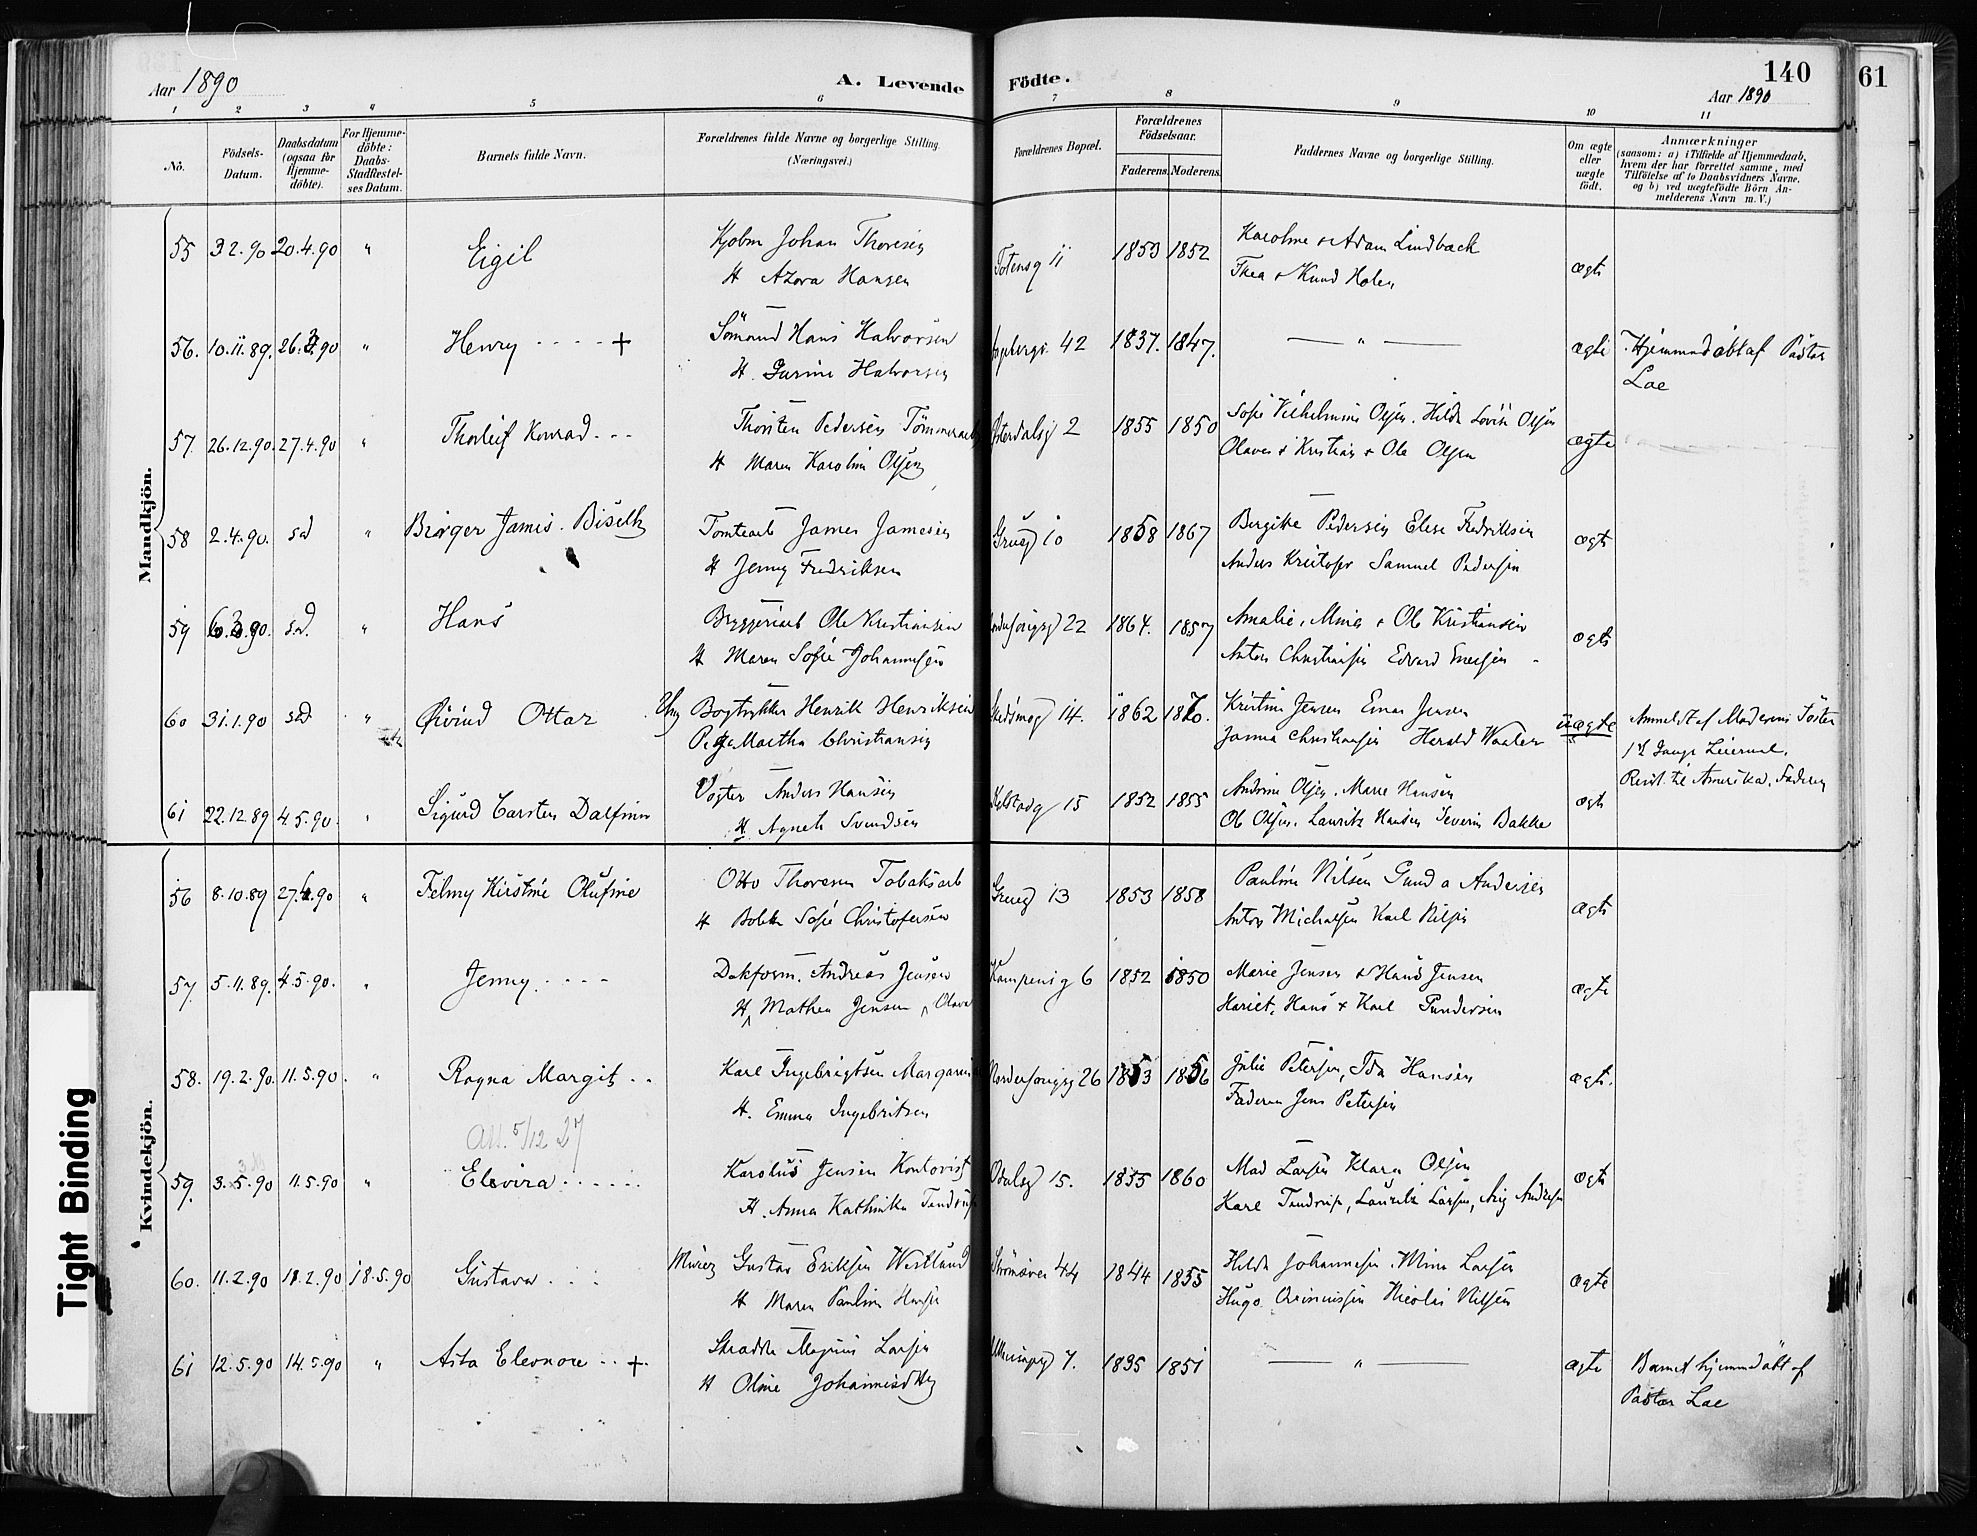 Aar 1890
A. Levende
Födte.
140
61
Aar 1890
1 2 3 " 5 6 7 8 9 10 11
No.
Födsels-
Datum.
Daabsdatum
(ogsaa for
Hjemme-
döbte).
For Hjemme-
döbte:
Daabs-
Stadfæstel-
ses Datum.
Barnets fulde Navn.
Forældrenes fulde Navne og borgerlige Stilling.
(Næringsvei.)
Forældrenes Bopæl.
Forældrenes
Födselsaar.
Faderens. Moderens.
Faddernes Navne og borgerlige Stilling.
Om ægte
eller
uægte
födt.
Anmærkninger
(saasom: a) i Tilfælde af Hjemmedaab,
hvem der har forrettet samme, med
Tilföielse af to Daabsvidners Navne.
og b) ved uægtefödte Börn An-
melderens Navn m. V.)
Mandkjön.
55 3 2. 90 20.4.90 " Eigil Kjøbm Johan Thoresen Totensg 11 1853 1852 Karoline & Adam Lindback ægte
H Azora Hansen Thea & Knud Holen
56. 10.11.89. 26.3.90 " Henry + Sömand Hans Halvorsen 42 1837. 1847. — " — ægte Hjemmedöbt af Pastor
H. Gurine Halvorsen Loe
57. 26.12.90. 27.4.90 " Thorleif Konrad Thorsten Pedersen Østerdalsg 2 1855 1850 Sofie Vilhelmine Olsen. Hilda Lovise Olsen ægte
H Maren Karoline Olsen Olaves & Kristian & Ole Olsen
58 2.4.90. sd " Birger Jamis. Tomtearb James Jamesen Grueg 10 1858 1867 Bergitte Pedersen Elise Fredriksen ægte
H Jenny Fredriksen Anders Kristofer Samuel Pedersen
59 6.3.90. s.d. " Hans Bryggeriarb Ole Kristiansen 22 1864. 1857 Amalie, Mina & Ole Kristiansen ægte
H Maren Sofie Johannesen Anton Christiansen Edvard
60 31.1.90 sd " Øivind Ottar Ung Bogtrykker Henrik Henriksen 14. 1862 1870. Kristine Jensen Einar Jensen uægte Anmeldt af Moderens Søster
Pige Martha Christiansen Janna Christiansen Harald Waaler 1ste Gangs Leiermaal.
Reist til Amerika, Faderen
61 22.12.89 4.5.90. " Sigurd Carsten Dalfinn Vogter Anders Hansen 15 1852 1855 Andrine Olsen. Marie Hansen ægte
H Agnete Svendsen Ole Olsen. Lauritz Hansen Severin Bakke
Kvindekjön.
56 8.10.89 27.4.90 " Felmy Kirstine Olufine Otto Thoresen Tobaksarb Grueg 13 1853 1858 Pauline Nilsen Gunda Andersen ægte
H Bolette Sofie Christofersen Anton Michalsen Karl Nilsen
57. 5.11.89. 4.5.90. " Jenny Andreas Jensen Kampensg 6 1852 1850 Marie Jensen & Hans Jensen ægte
H Mathea Jensen Olava Hariet, Hans & Karl Gundersen
58. 19.2.90. 11.5.90. " Ragna Margit Karl Ingebrigtsen Nordenfongsg 26 1853 1856 Julie Petersen, Ida Hansen ægte.
H. Emma Ingebritsen Faderen Jens Petersen
Att. 5/12 27
59. 3.5.90 11.5.90 " Elevira Karolus Jensen Kontorist Odalsg 15. 1855 1860 Klara Olsen ægte
H. Anna Kathinka Karl Tandrup, Lauritz Larsen,
60. 11.2.90 11.2.90 18.5.90 Gustava Murer Gustav Eriksen Westlund Strömsvei 44 1844 1855 Hilda Johannesen. Mina Larsen ægte
H Maren Pauline Hugo Nicolai Nilsen
61 12.5.90 14.5.90 " Asta Eleonore + Skrædder Magnus Larsen 7. 1895 1851 — " — ægte Barnet hjemmedöbt af
H Oline Johannesdtter Pastor Loe
Tight Binding